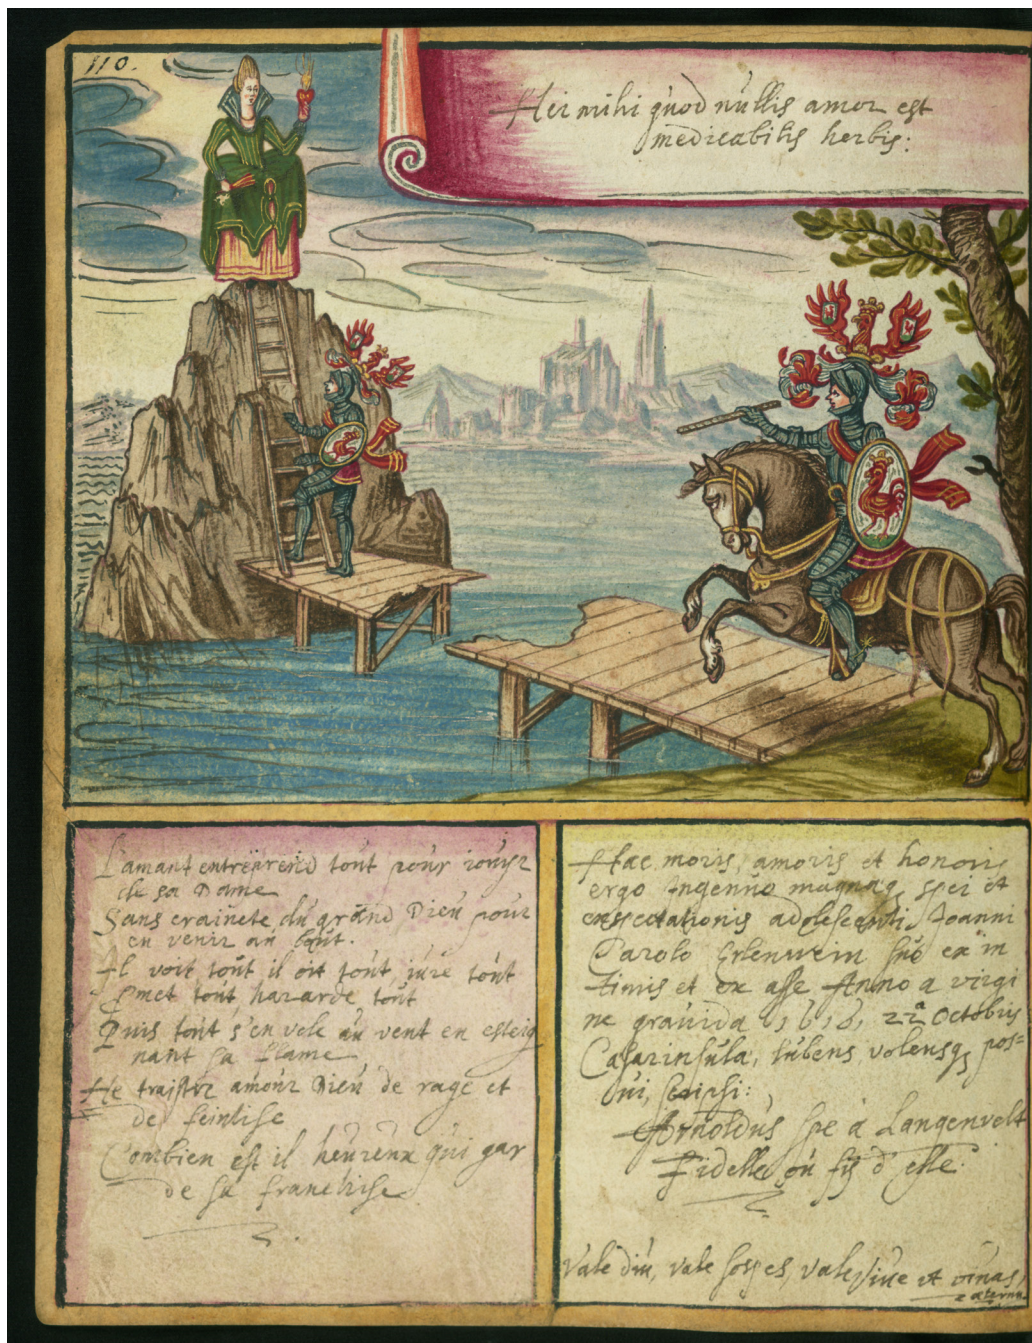 110.
Hei mihi quod nullis amor est
medicabilis herbis:
L'amant entreprend tout pour iouyr
de sa Dame
Sans crainete du grand Dieu pour
en venir au bout.
Il voit tout il oit tout jure tout
Pmet tout hazarde tout
Puis tout s'en vole au vent en esteig
nant sa flame
He traistre amour Dieu de rage et
de feintise
Combien est il heureux qui gar
de sa franchise
Haec moris, amoris et honoris
ergo Ingenuo magnaeq spei et
adolescenti Joanni
Carolo Erlenwein suo ex in
timis et ex asse Anno a virgi
ne gravida 1616, 22 Octobris
Caesarinsula, lubens volensq pos=
ui, scripsi:
Arnoldus Spe a Langenvelt
Fidelle ou fis d'elle.
Vale diu, vale sospes, vale, vive et vivas
aeternu